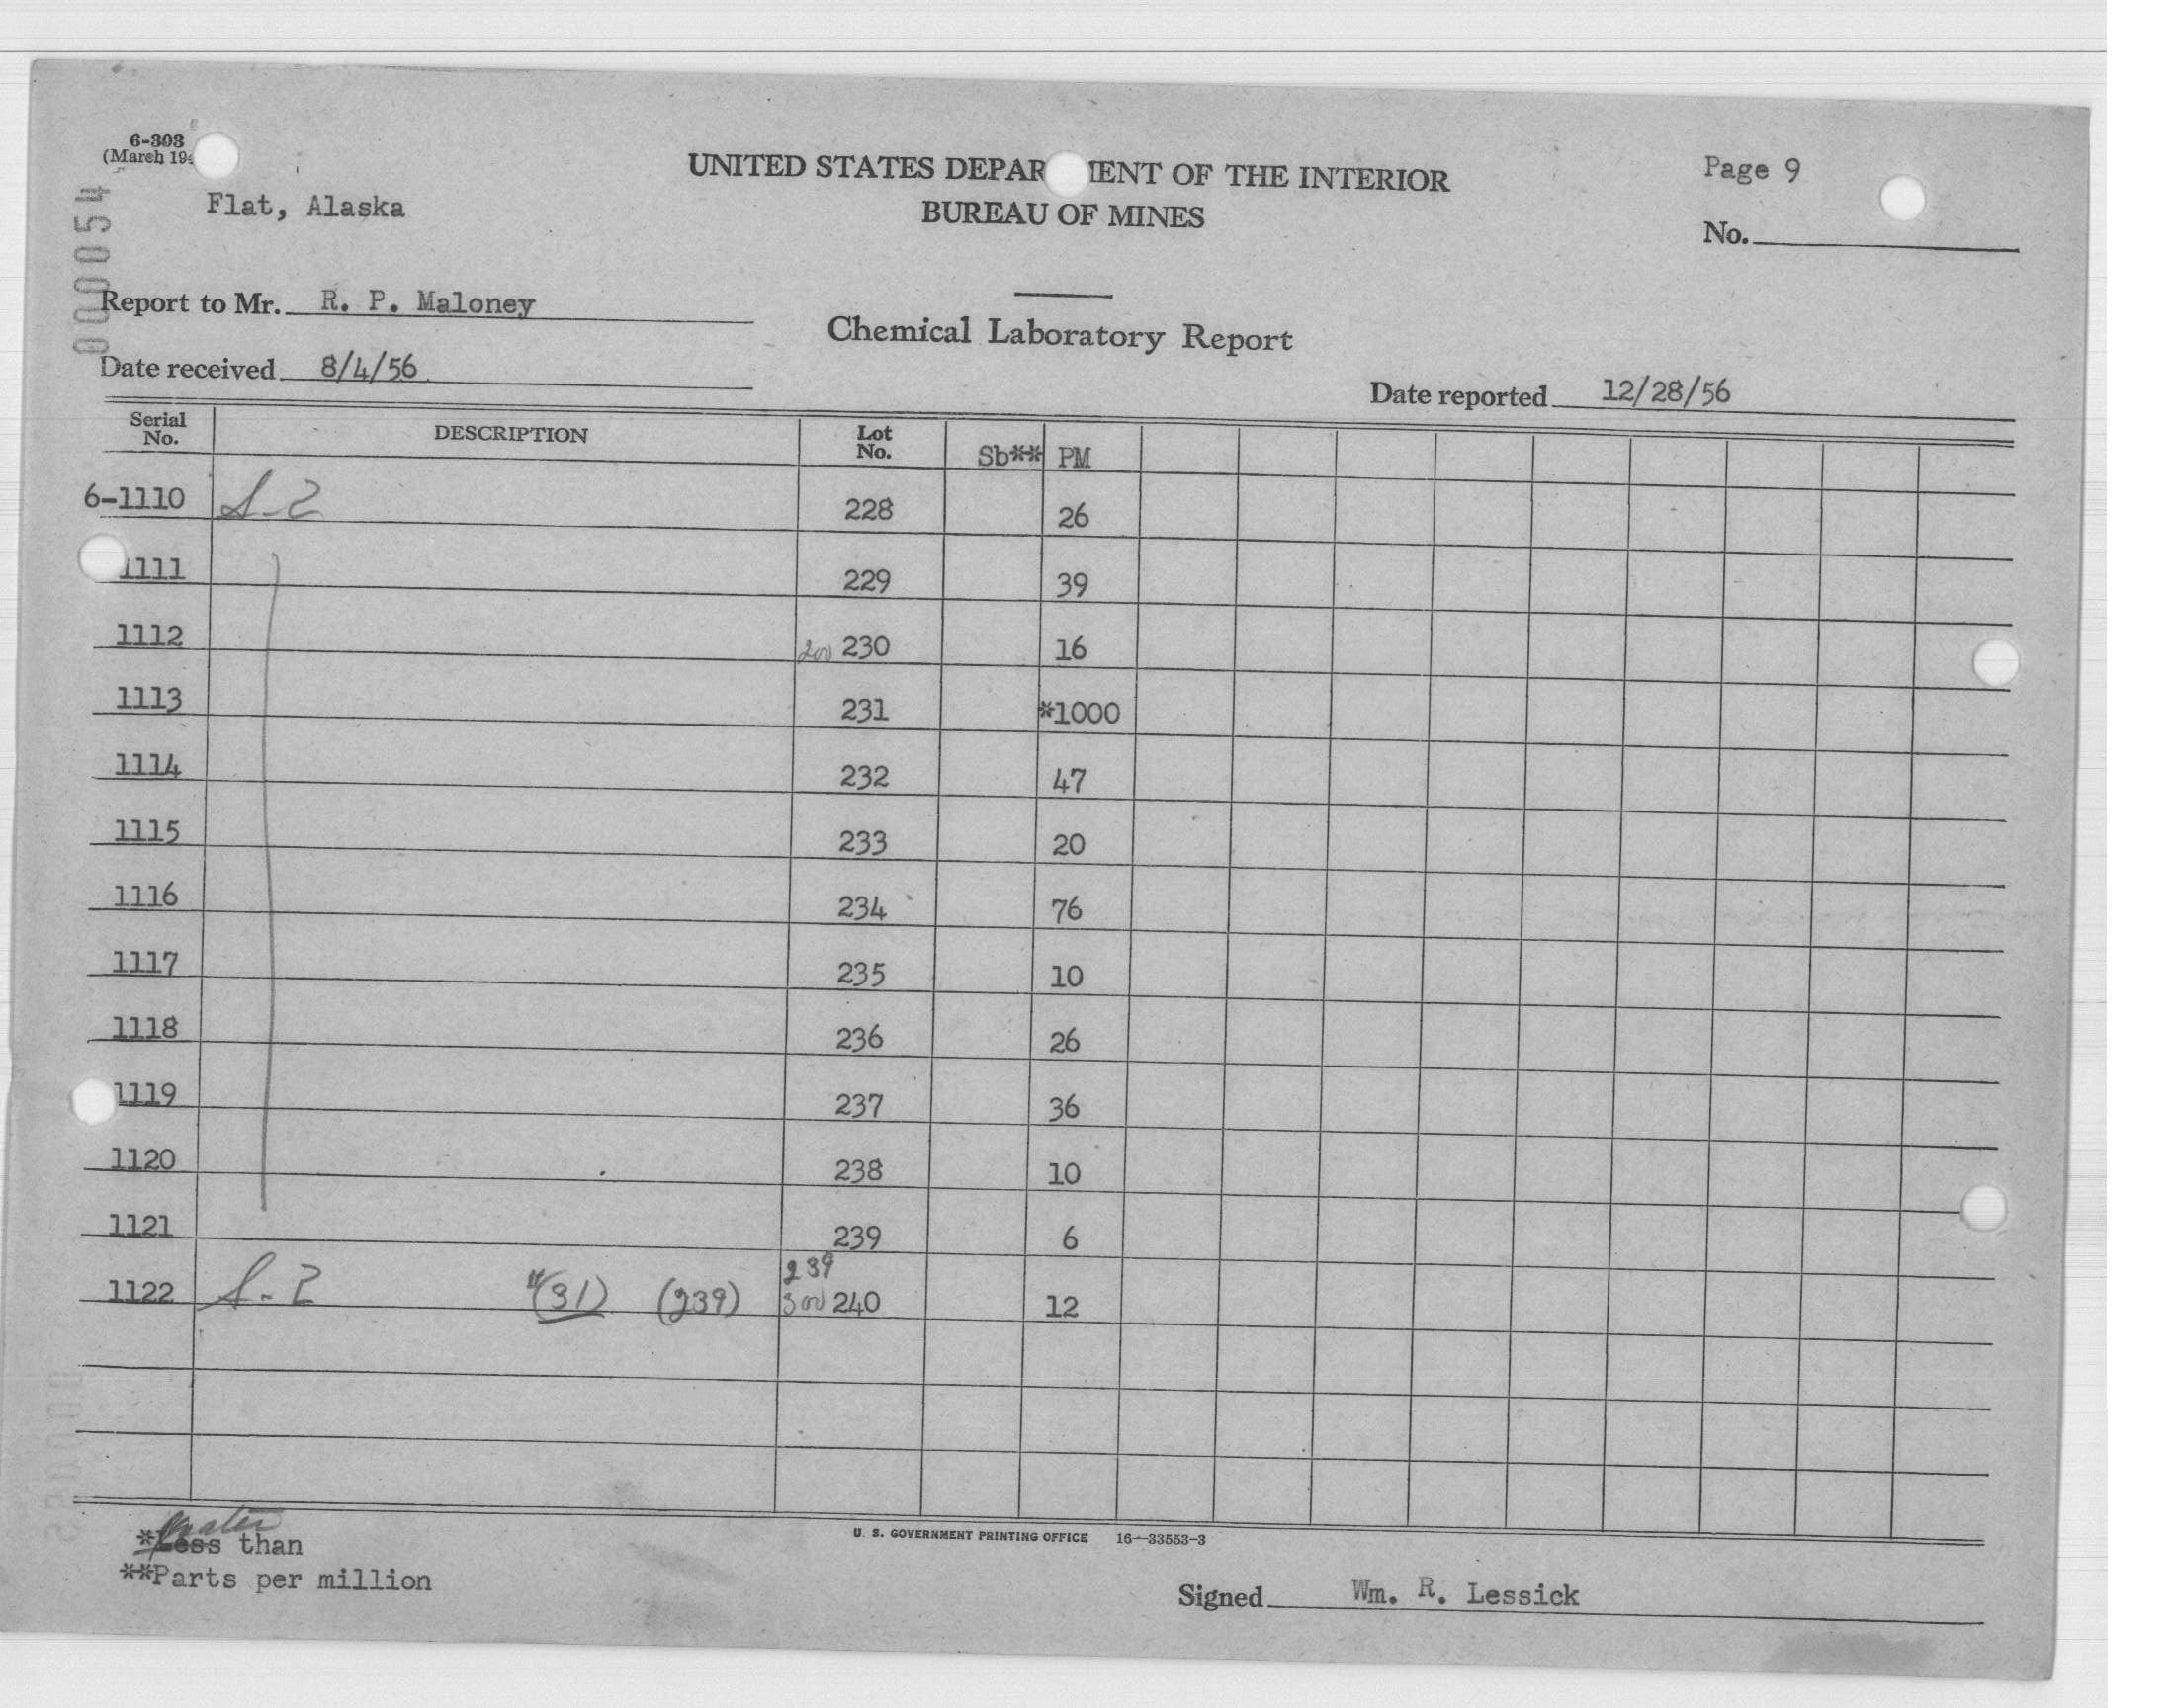 6-303
(March 194
Flat, Alaska
000054
UNITED STATES DEPAR MENT OF THE INTERIOR
BUREAU OF MINES
Page 9
No.
Report to Mr. R. P. Maloney
Chemical Laboratory Report
Date received 8/4/56
Date reported 12/28/56
Serial No. DESCRIPTION Lot No. Sb** PM
6-1110 S-2 228 26
1111 229 39
1112 230 16
1113 231 *1000
1114 232 47
1115 233 20
1116 234 76
1117 235 10
1118 236 26
1119 237 36
1120 238 10
1121 239 6
239
1122 S-2 (31) (239) 300 240 12
Greater
*Less than
**Parts per million
U. S. GOVERNMENT PRINTING OFFICE 16-33553-3
Signed Wm. R. Lessick